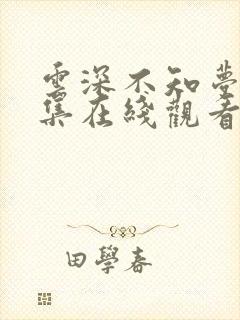 雲深不知夢
集在綫觀看
田學春